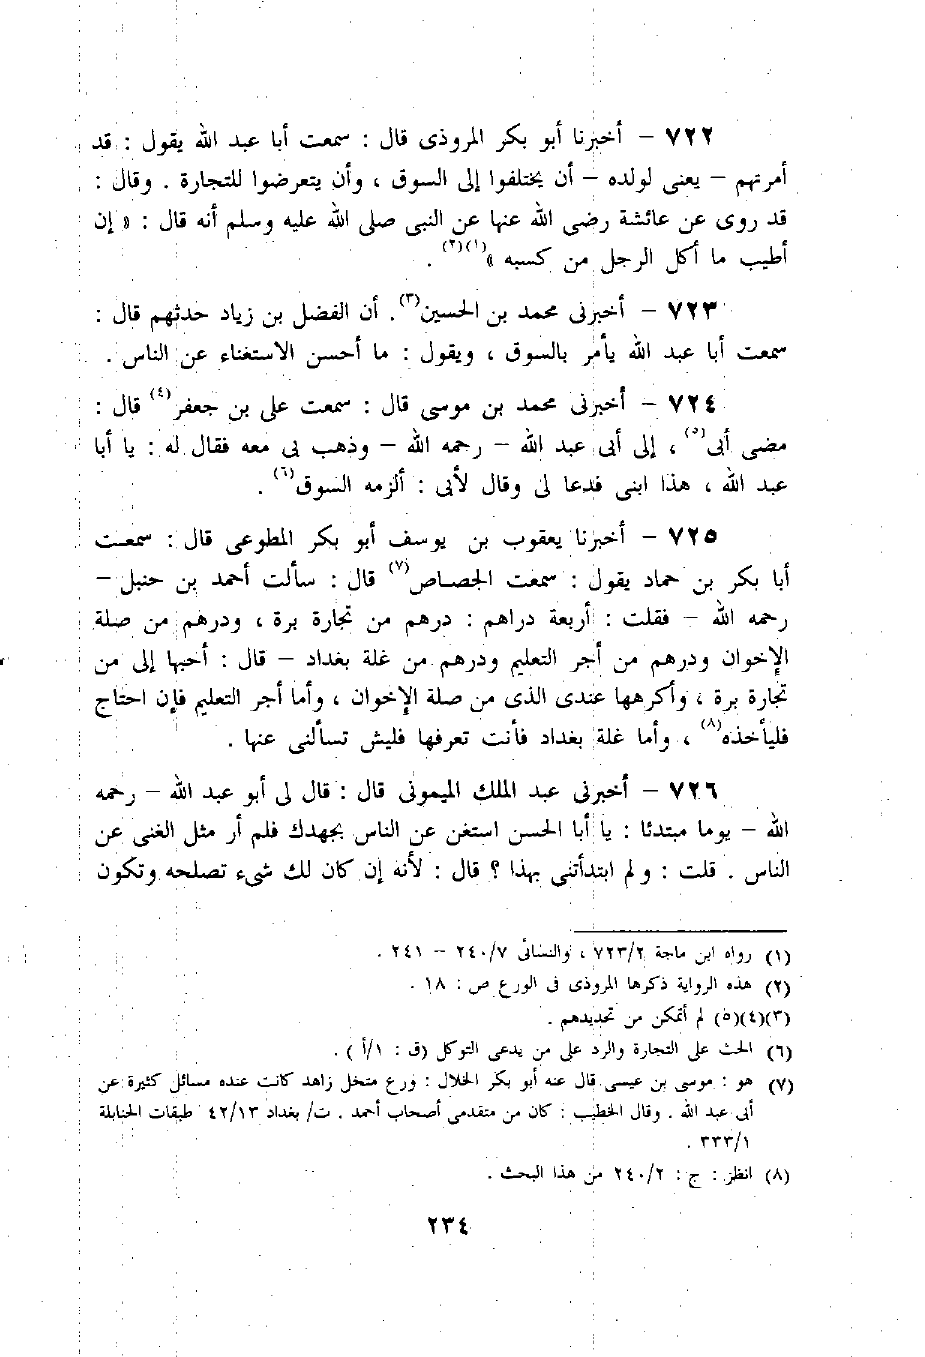 ٧٢٢ – أخبرنا أبو بكر المروذى قال : سمعت أبا عبد الله يقول : قد
أمرتهم – يعنى لولده – أن يختلفوا إلى السوق ، وأن يتعرضوا للتجارة . وقال :
قد روى عن عائشة رضى الله عنها عن النبى صلى الله عليه وسلم أنه قال : « إن
أطيب ما أكل الرجل من كسبه »(١)(٢) .
٧٢٣ – أخبرنى محمد بن الحسين(٣). أن الفضل بن زياد حدثهم قال :
سمعت أبا عبد الله يأمر بالسوق ، ويقول : ما أحسن الاستغناء عن الناس .
٧٢٤ – أخبرنى محمد بن موسى قال : سمعت على بن جعفر(٤) قال :
مضى أبى(٥) ، إلى أبى عبد الله – رحمه الله – وذهب بى معه فقال له : يا أبا
عبد الله ، هذا ابنى فدعا لى وقال لأبى : ألزمه السوق(٦) .
٧٢٥ – أخبرنا يعقوب بن يوسف أبو بكر المطوعى قال : سمعت
أبا بكر بن حماد يقول : سمعت الجصاص(٧) قال : سألت أحمد بن حنبل –
رحمه الله – فقلت : أربعة دراهم : درهم من تجارة برة ، ودرهم من صلة
الإخوان ودرهم من أجر التعليم ودرهم من غلة بغداد – قال : أحبها إلى من
تجارة برة ، وأكرهها عندى الذى من صلة الإخوان ، وأما أجر التعليم فإن احتاج
فليأخذه(٨) ، وأما غلة بغداد فأنت تعرفها فليش تسألنى عنها .
٧٢٦ – أخبرنى عبد الملك الميمونى قال : قال لى أبو عبد الله – رحمه
الله – يوما مبتدئا : يا أبا الحسن استغن عن الناس بجهدك فلم أر مثل الغنى عن
الناس . قلت : ولم ابتدأتنى بهذا ؟ قال : لأنه إن كان لك شىء تصلحه وتكون
(١) رواه ابن ماجة ٧٢٣/٢ ، والنسائى ٢٤٠/٧ – ٢٤١ .
(٢) هذه الرواية ذكرها المروذى فى الورع ص : ١٨ .
(٣)(٤)(٥) لم أتمكن من تحديدهم .
(٦) الحث على التجارة والرد على من يدعى التوكل (ق : ١/أ ) .
(٧) هو : موسى بن عيسى قال عنه أبو بكر الخلال : ورع متخل زاهد كانت عنده مسائل كثيرة عن
أبى عبد الله . وقال الخطيب : كان من متقدمى أصحاب أحمد . ت/ بغداد ٤٢/١٣ طبقات الحنابلة
٣٣٣/١ .
(٨) انظر : ج : ٢٤٠/٢ من هذا البحث .
٢٣٤